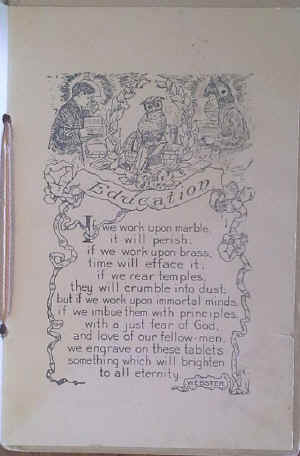 Education
If we work upon marble,
it will perish;
if we work upon brass,
time will efface it;
if we rear temples,
they will crumble into dust;
but if we work upon immortal minds,
if we imbue them with principles,
with a just fear of God,
and love of our fellow-men,
we engrave on these tablets
something which will brighten
to all eternity.
WEBSTER